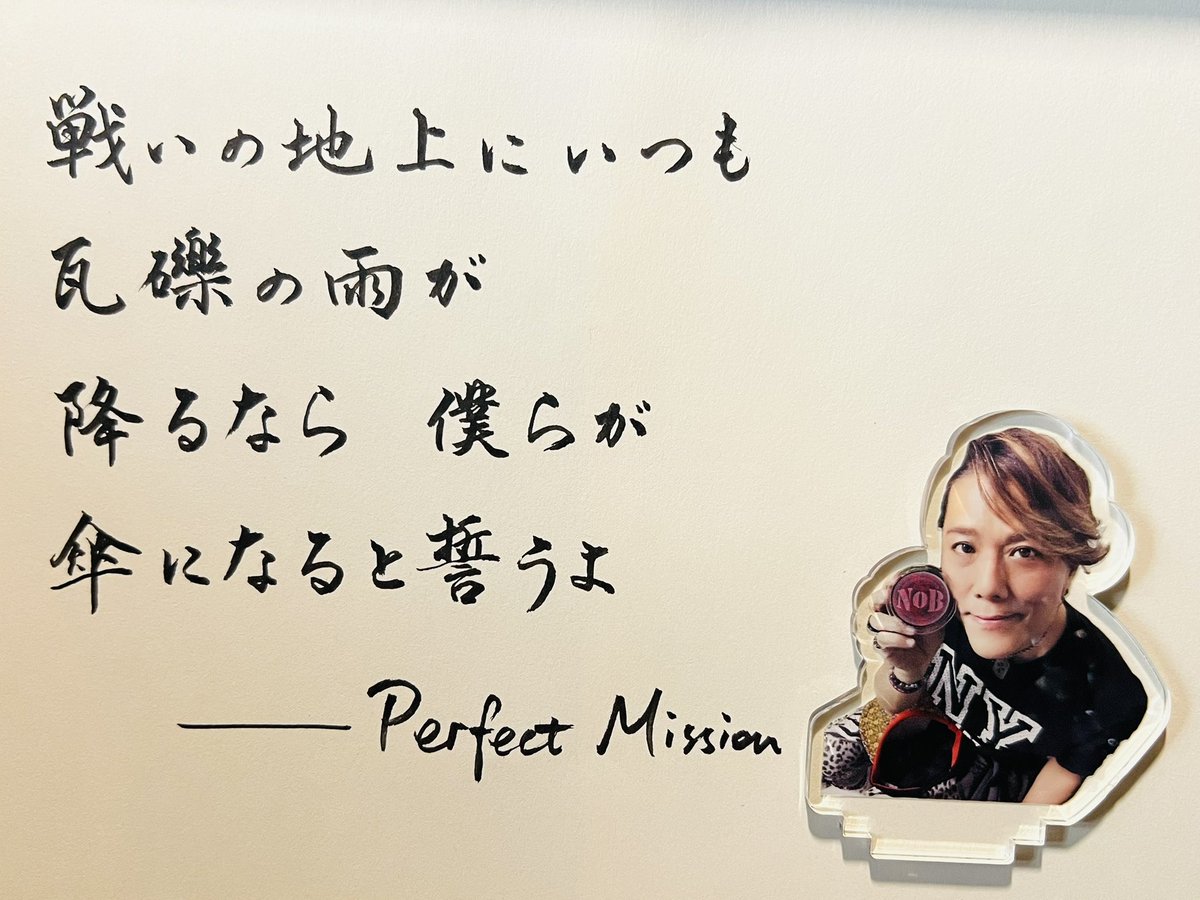 戦いの地上にいつも
瓦礫の雨が
降るなら 僕らが
傘になると誓うよ
── Perfect Mission
NoB
NY